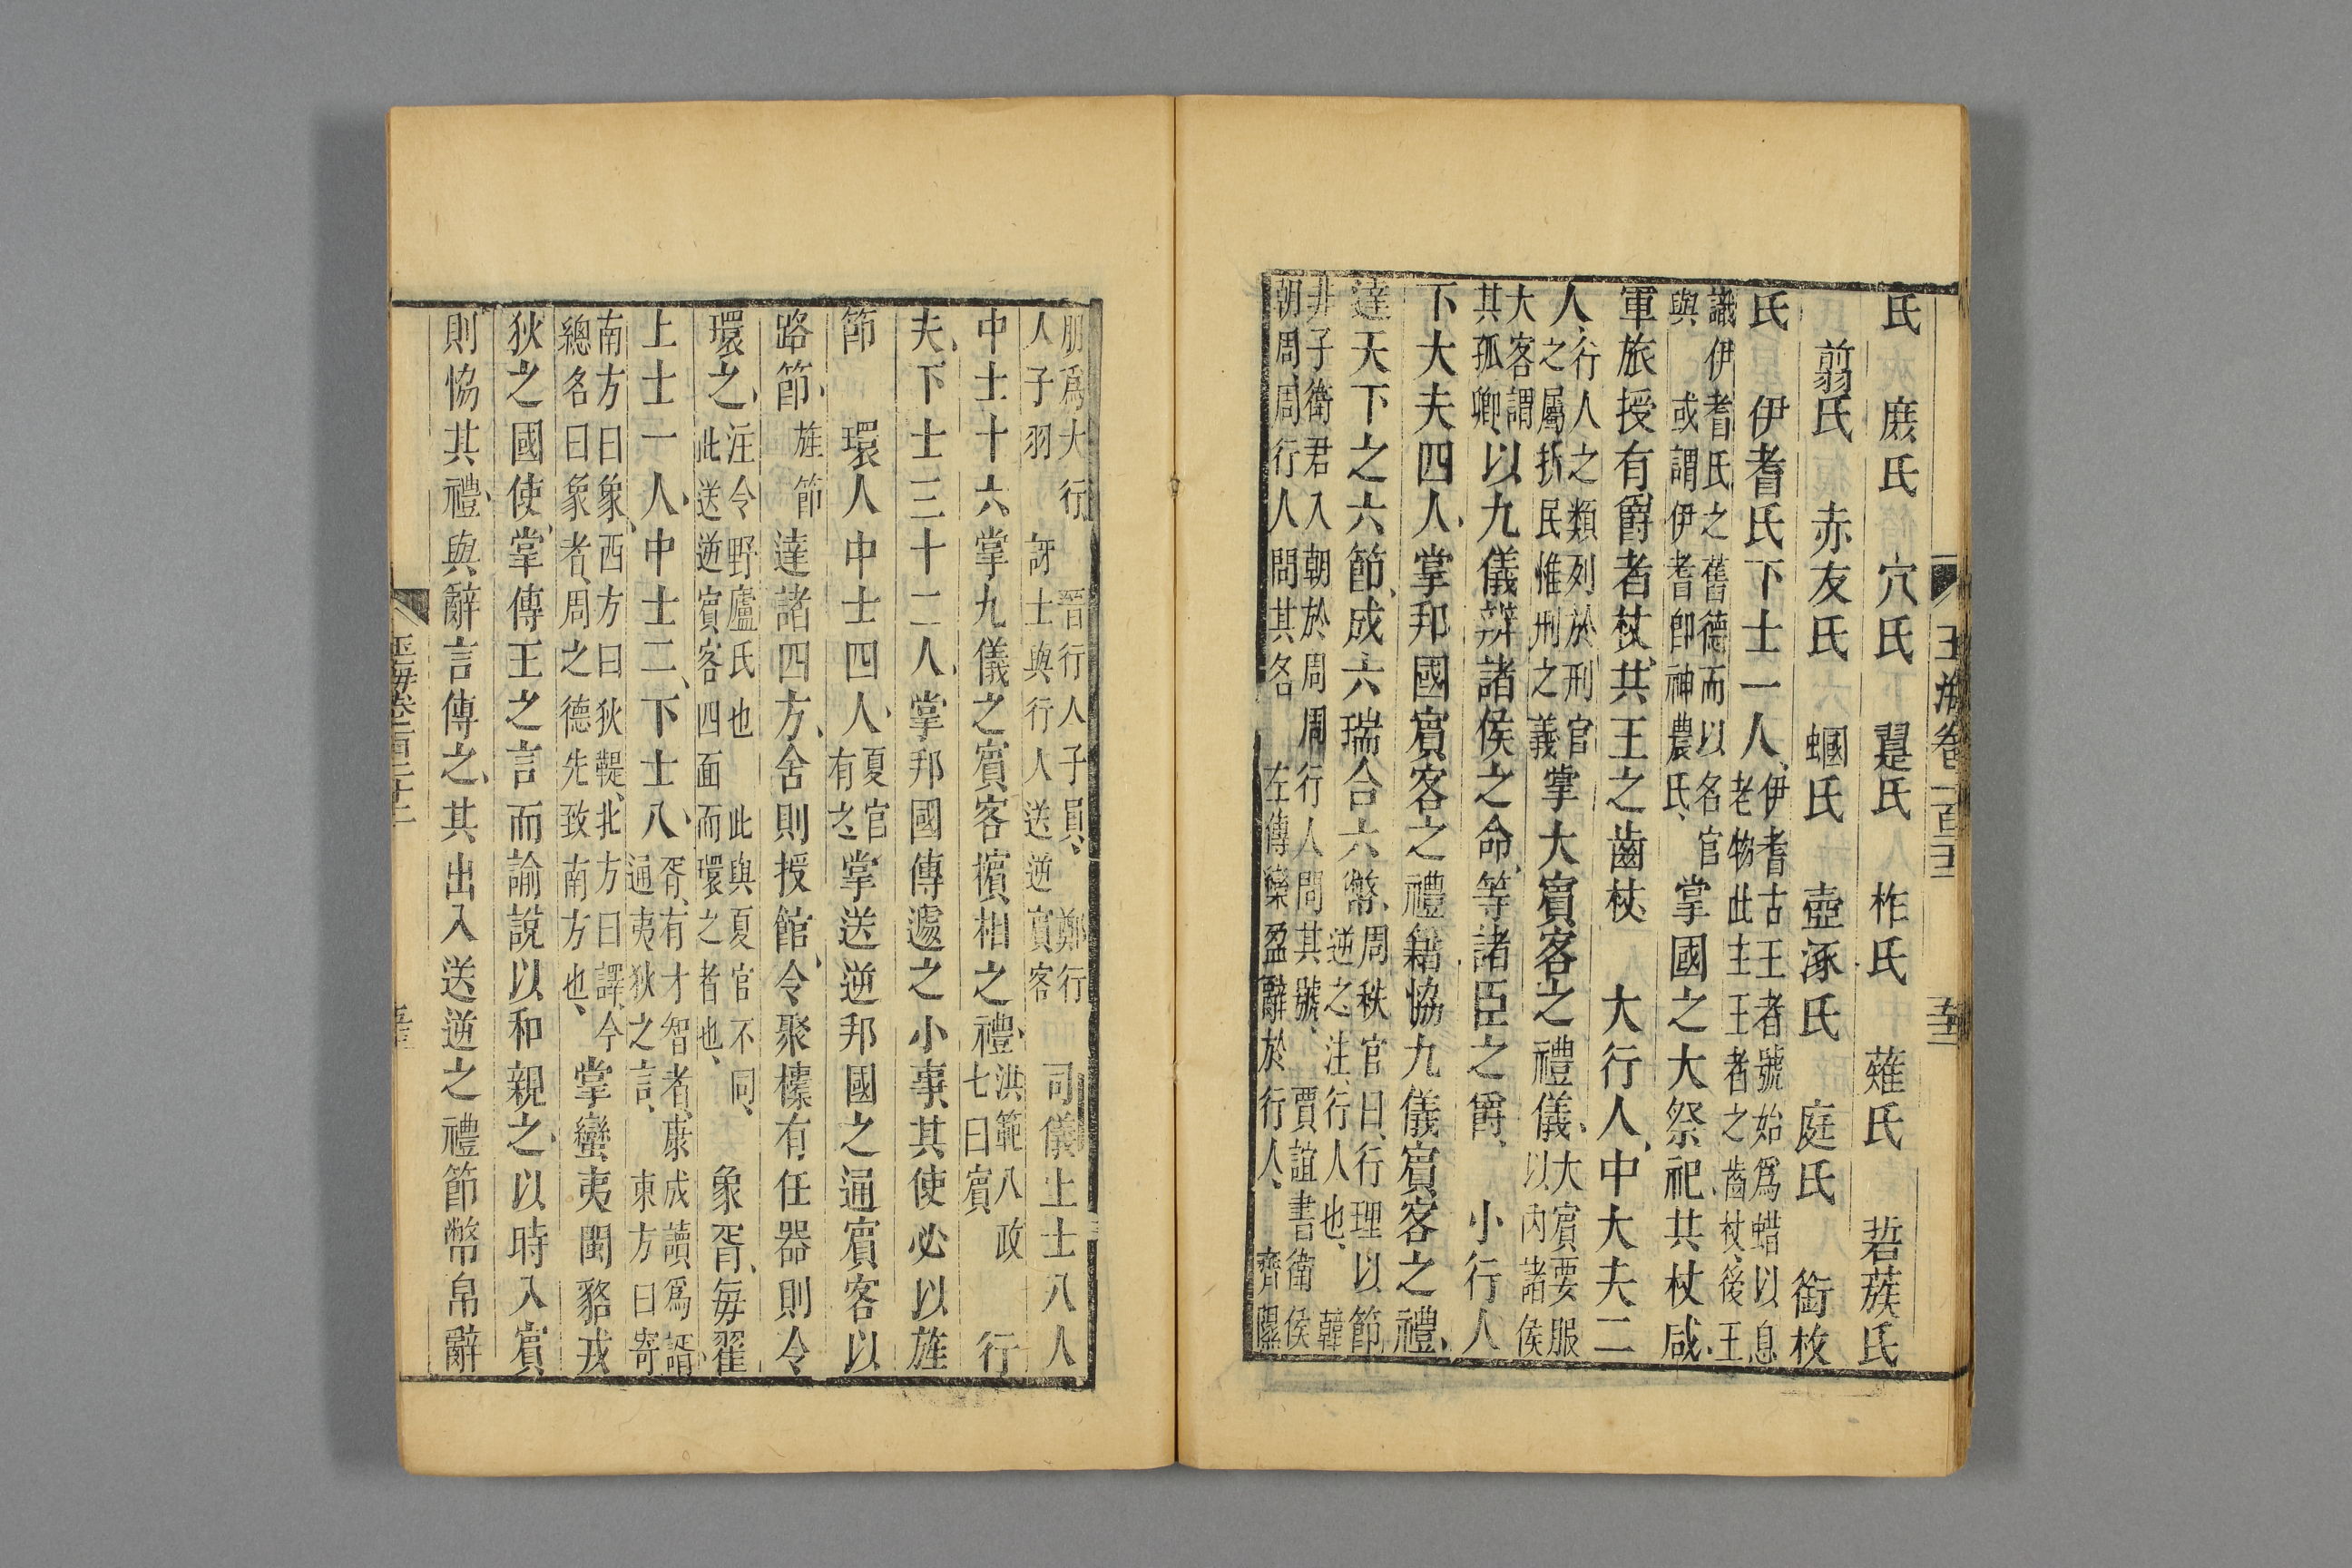 氏　庶氏　穴氏　翨氏　柞氏　薙氏　硩蔟氏
翦氏　赤友氏　蟈氏　壺涿氏　庭氏　銜枚
氏　伊耆氏下士一人伊耆古王者號始爲蜡以息
老物此主王者之齒杖後王
識伊耆氏之舊德而以名官
與　或謂伊耆卽神農氏掌國之大祭祀共杖咸
軍旅授有爵者杖共王之齒杖　大行人中大夫二
人行人之類列於刑官
之屬折民惟刑之義掌大賓客之禮儀大賓要服
以內諸侯
大客謂
其孤卿以九儀辨諸侯之命等諸臣之爵　小行人
下大夫四人掌邦國賓客之禮籍協九儀賓客之禮
達天下之六節成六瑞合六幣周秩官曰行理以節
逆之注行人也　韓
非子衛君入朝於周周行人問其號　賈誼書衛侯
朝周周行人問其名　左傳欒盈辭於行人　齊隰
朋爲大行　晉行人子員　鄭行
人子羽　訝士與行人送逆賓客　司儀上士八人
中士十六掌九儀之賓客擯相之禮洪範八政
七曰賓　行
夫下士三十二人掌邦國傳遽之小事其使必以旌
節　環人中士四人夏官
有之掌送逆邦國之通賓客以
路節旌節達諸四方舍則授館令聚檬有任器則令
環之注令野廬氏也　此與夏官不同
此送逆賓客四面而環之者也　象胥每翟
上士一人中士二下士八胥有才智者康成讀爲諝
通夷狄之言　東方曰寄
南方曰象西方曰狄鞮北方曰譯今
總名曰象者周之德先致南方也掌蠻夷閩貉戎
狄之國使掌傳王之言而諭說以和親之以時入賓
則恊其禮與辭言傳之其出入送逆之禮節幣帛辭